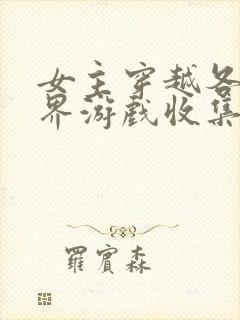 女主穿越各
界游戏收集
羅賓森